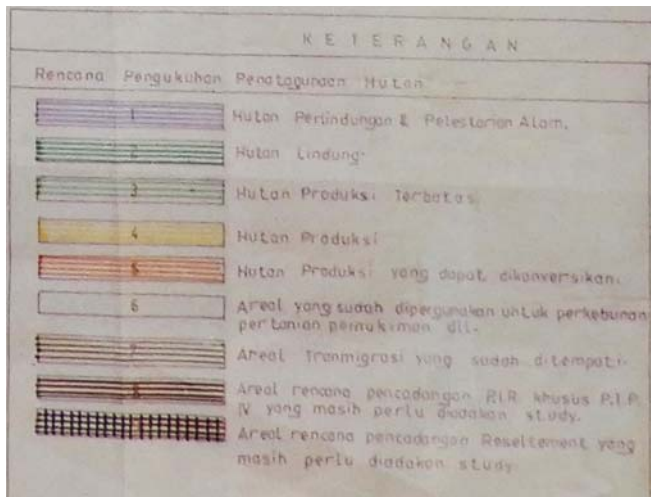 KETERANGAN
Rencana Pengukuhan Penatagunaan Hutan
1 Hutan Perlindungan & Pelestarian Alam.
2 Hutan Lindung.
3 Hutan Produksi Terbatas
4 Hutan Produksi
5 Hutan Produksi yang dapat dikonversikan.
6 Areal yang sudah dipergunakan untuk perkebunan
pertanian pemukiman dll.
7 Areal Tranmigrasi yang sudah ditempati.
8 Areal rencana pencadangan P.I.R khusus P.T.P.
IV yang masih perlu diadakan study.
Areal rencana pencadangan Reseltement yang
masih perlu diadakan study